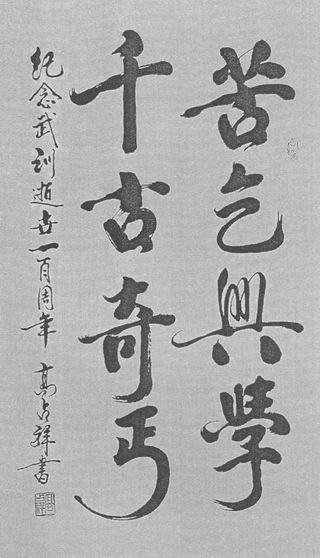 苦乞興學
千古奇丐
紀念武训逝世一百周年 高占祥書